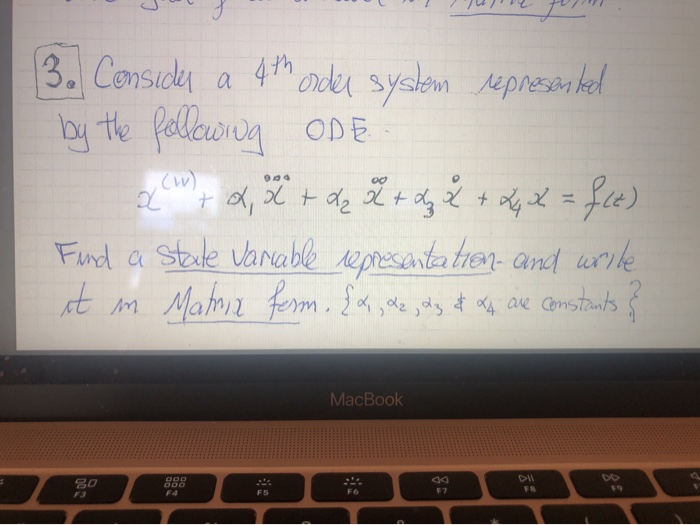 3. Consider a 4th order system represented
by the following ODE.
x^(iv) + α₁ x⃛ + α₂ ẍ + α₃ ẋ + α₄ x = f(t)
Find a state variable representation and write
it in Matrix form. {α₁, α₂, α₃ & α₄ are constants}
MacBook
F3
F4
F5
F6
F7
F8
F9